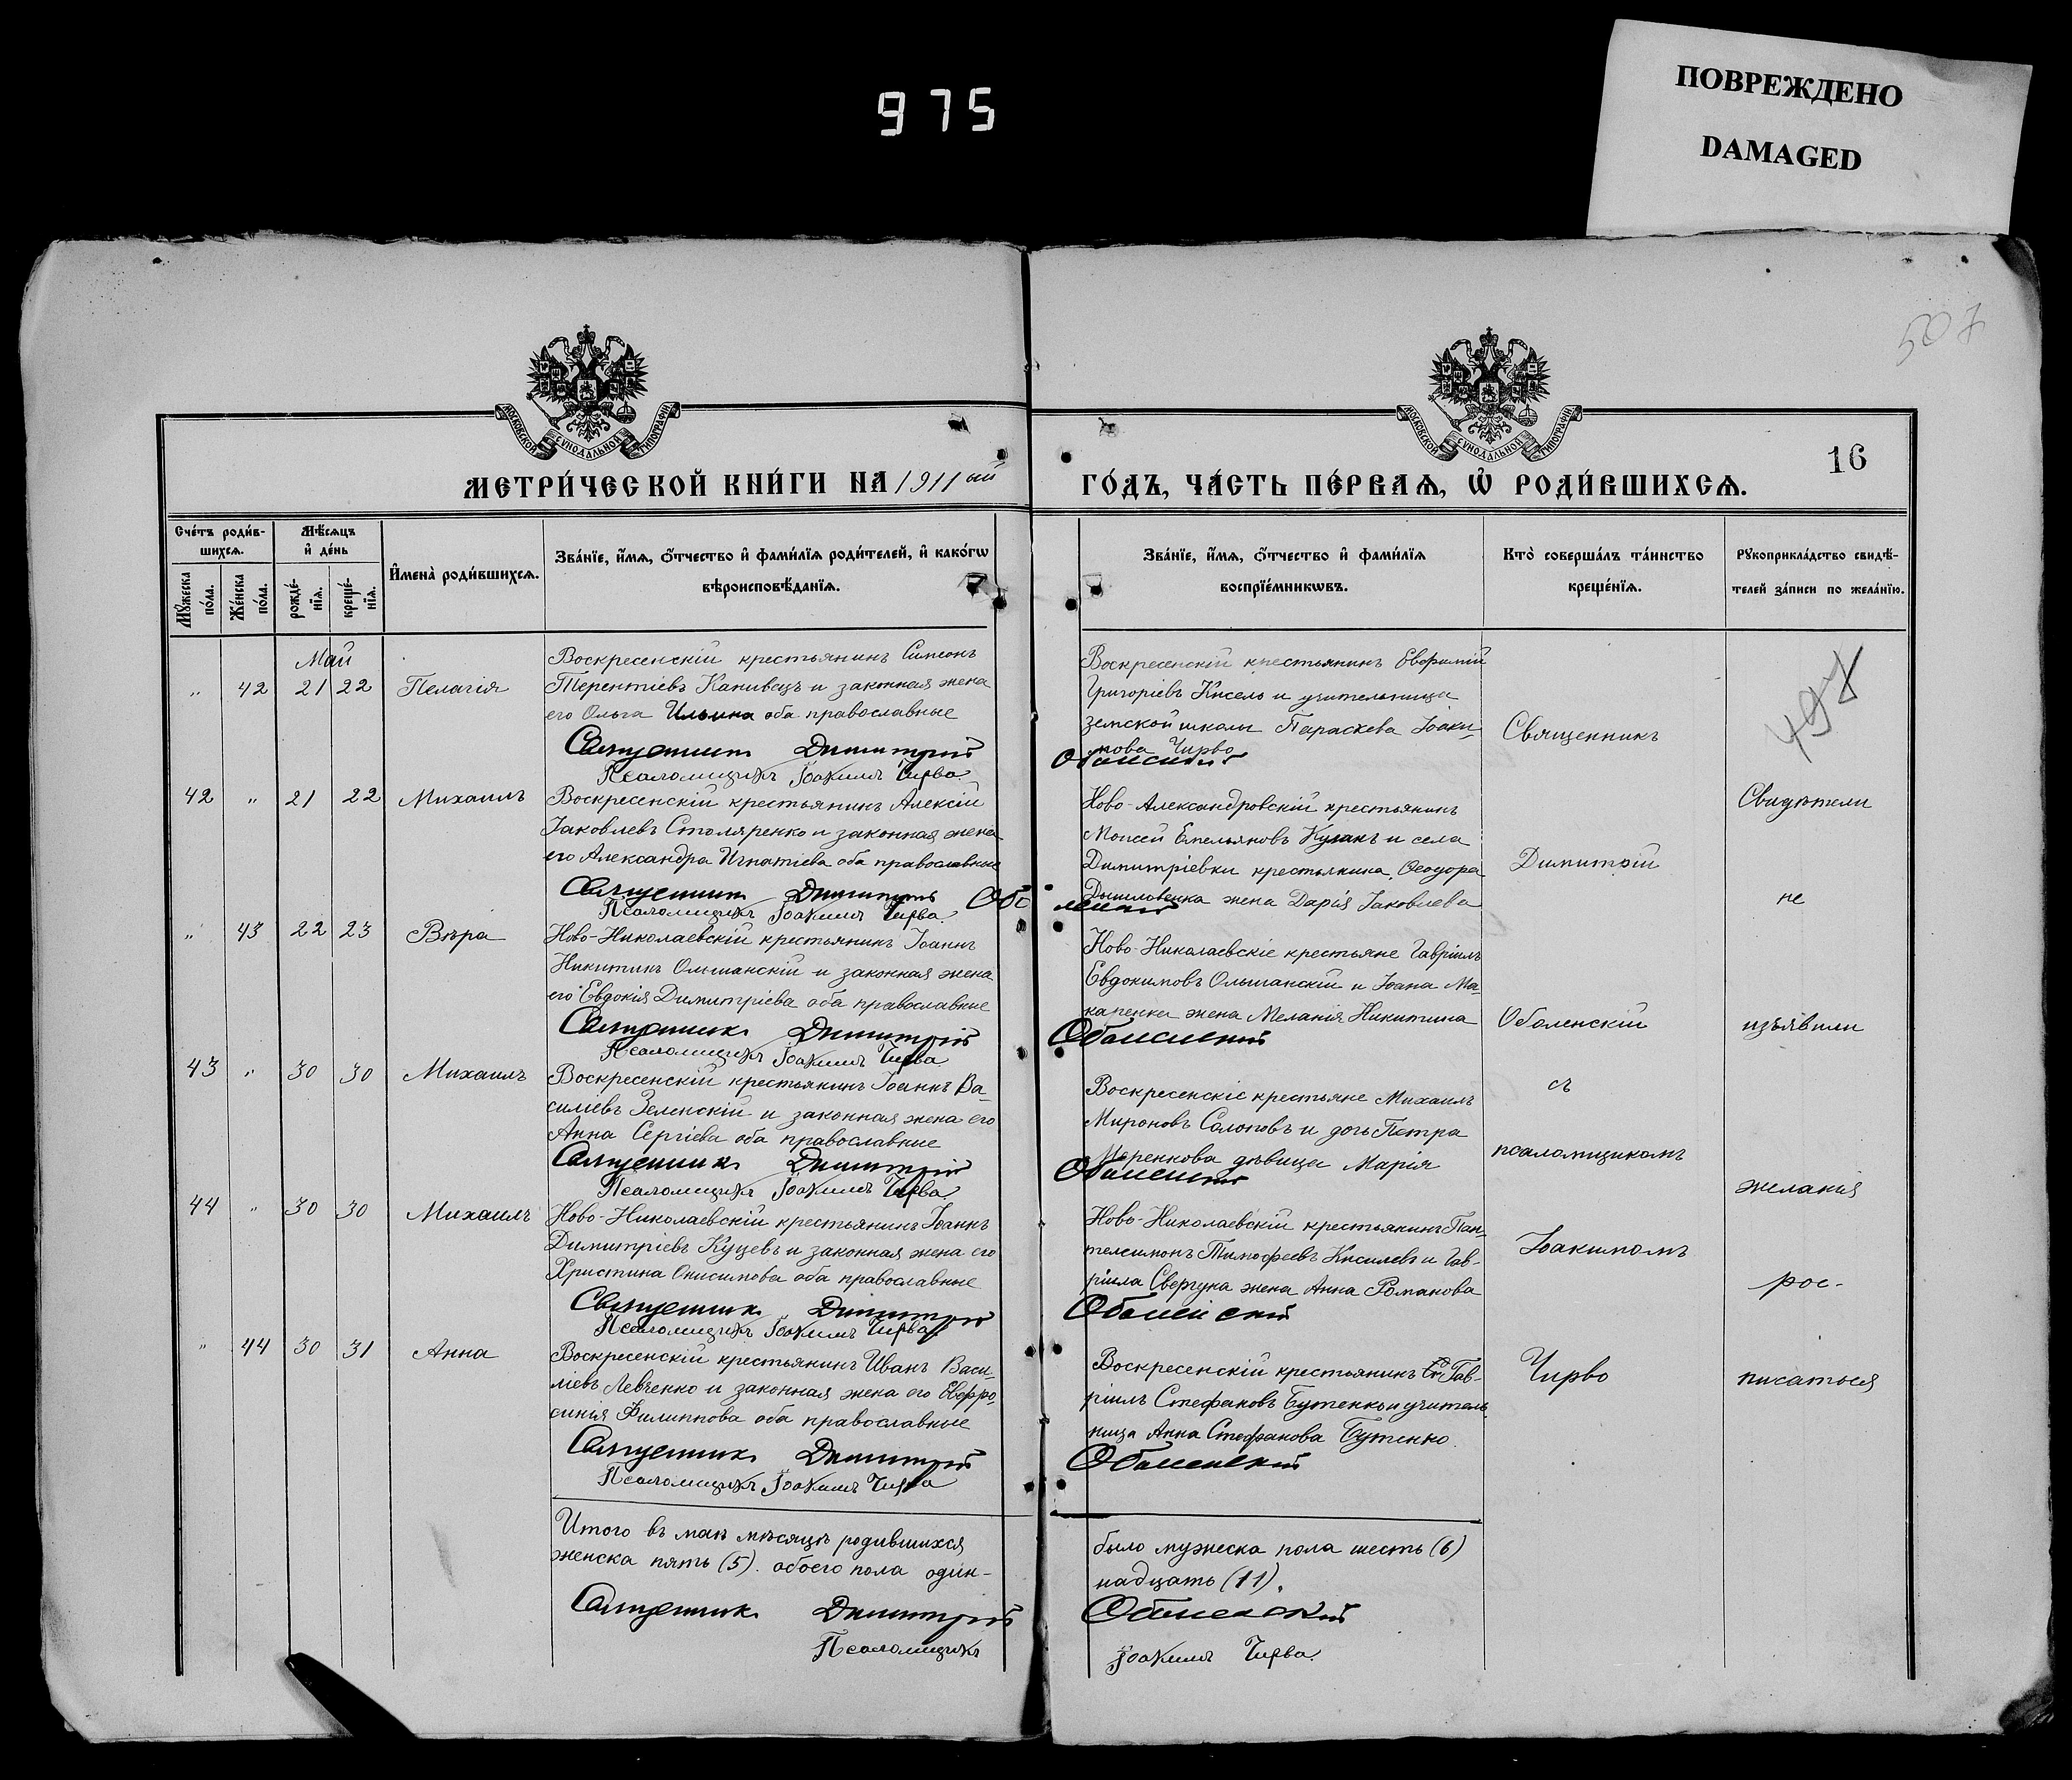 975
ПОВРЕЖДЕНО
DAMAGED
507
МОСКОВСКОЙ СУНОДАЛЬНОЙ ТИПОГРАФІИ
МОСКОВСКОЙ СУНОДАЛЬНОЙ ТИПОГРАФІИ
16
МЕТРИ́ЧЕСКОЙ КНИ́ГИ НА 1911ый
ГО́ДЪ, ЧА́СТЬ ПЕ́РВАѦ, Ѡ҆ РОДИ́ВШИХСѦ.
Сче́тъ роди́в-
шихсѧ.
Мѣ́сѧцъ
и҆ де́нь
Мꙋ́жеска
по́ла.
Же́нска
по́ла.
рожде́-
нїѧ.
креще́-
нїѧ.
И҆мена̀ роди́вшихсѧ.
Зва́нїе, и҆́мѧ, ѻ҆́тчество и҆ фами́лїѧ роди́телей, и҆ како́гѡ
вѣроисповѣ́данїѧ.
Зва́нїе, и҆́мѧ, ѻ҆́тчество и҆ фами́лїѧ
воспрїе́мникѡвъ.
Кто̀ соверша́лъ та́инство
креще́нїѧ.
Рꙋкоприкла́дство свидѣ́-
телей за́писи по жела́нїю.
Май
„ 42 21 22 Пелагія
Воскресенскій крестьянинъ Симеонъ
Терентіевъ Канивецъ и законная жена
его Ольга Ильина оба православные
Священникъ Димитрій
Псаломщикъ Іоакимъ Чирва
Воскресенскій крестьянинъ Евфимій
Григоріевъ Кисель и учительница
земской школы Параскева Іоаки-
мова Чирво
Оболенскій
Священникъ
497
42 „ 21 22 Михаилъ
Воскресенскій крестьянинъ Алексій
Іаковлевъ Столяренко и законная жена
его Александра Игнатіева оба православные
Священникъ Димитрій Обо
Псаломщикъ Іоакимъ Чирва
Ново-Александровскій крестьянинъ
Моисей Емельяновъ Кулакъ и села
Димитріевки крестьянина Ѳеодора
жена Дарія Іаковлева
ленскій
Димитрій
Свидѣтели
не
„ 43 22 23 Вѣра
Ново-Николаевскій крестьянинъ Іоаннъ
Никитинъ Ольшанскій и законная жена
его Евдокія Димитріева оба православные
Священникъ Димитрій
Псаломщикъ Іоакимъ Чирва
Ново-Николаевскіе крестьяне Гавріилъ
Евдокимовъ Ольшанскій и Іоана Ма-
каренки жена Меланія Никитина
Оболенскій
Оболенскій
изъявили
43 „ 30 30 Михаилъ
Воскресенскій крестьянинъ Іоаннъ Ва-
силіевъ Зеленскій и законная жена его
Анна Сергіева оба православные
Священникъ Димитрій
Псаломщикъ Іоакимъ Чирва
Воскресенскіе крестьяне Михаилъ
Мироновъ Солоповъ и дочь Петра
Маренкова дѣвица Марія
Оболенскій
съ
псаломщикомъ
желанія
44 „ 30 30 Михаилъ
Ново-Николаевскій крестьянинъ Іоаннъ
Димитріевъ Куцевъ и законная жена его
Христина Онисимова оба православные
Священникъ Димитрій
Псаломщикъ Іоакимъ Чирва
Ново-Николаевскій крестьянинъ Пан-
телеимонъ Тимофеевъ Киселевъ и Гав-
ріила Свергуна жена Анна Романова
Оболенскій
Іоакимомъ
рос-
„ 44 30 31 Анна
Воскресенскій крестьянинъ Иванъ Васи-
ліевъ Левченко и законная жена его Евфро-
синія Филиппова оба православные
Священникъ Димитрій
Псаломщикъ Іоакимъ Чирва
Воскресенскій крестьянинъ Гав-
ріилъ Стефановъ Бутенко и учитель-
ница Анна Стефанова Бутенко
Оболенскій
Чирво
писаться
Итого въ маѣ мѣсяцѣ родившихся
женска пять (5). обоего пола один-
Священникъ Димитрій
Псаломщикъ
было мужеска пола шесть (6)
надцать (11).
Оболенскій
Іоакимъ Чирва